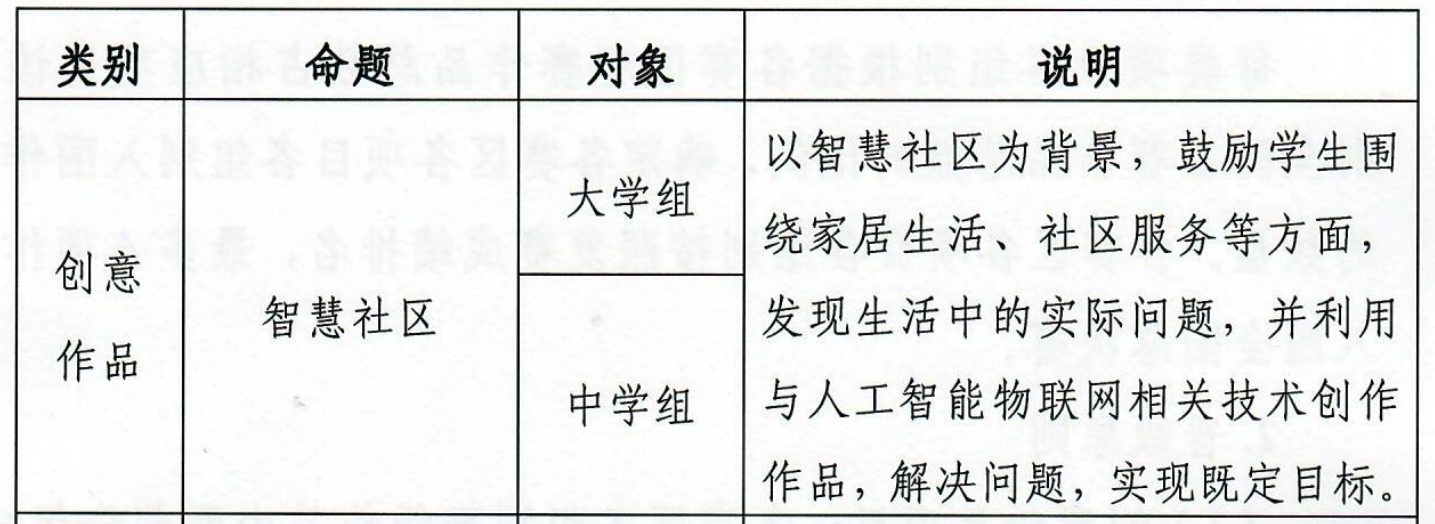 类别 命题 对象 说明
创意
作品
智慧社区
大学组
中学组
以智慧社区为背景，鼓励学生围
绕家居生活、社区服务等方面，
发现生活中的实际问题，并利用
与人工智能物联网相关技术创作
作品，解决问题，实现既定目标。